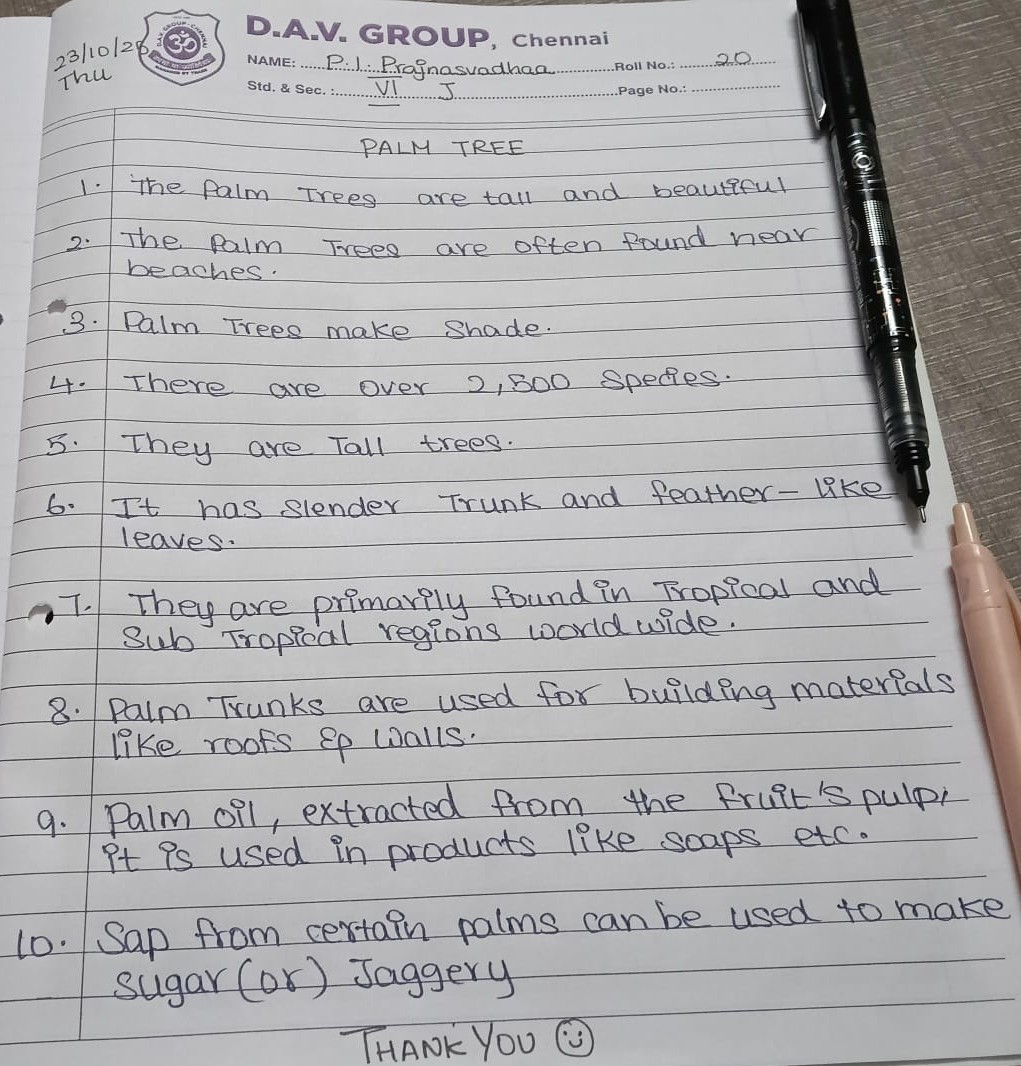 23/10/25
Thu
D.A.V. GROUP, Chennai
NAME: P.J. Prajnasvadhaa Roll No.: 20
Std. & Sec. : VI J Page No.:
PALM TREE
1. The Palm Trees are tall and beautiful
2. The Palm Trees are often found near
beaches.
3. Palm Trees make Shade.
4. There are over 2,500 Species.
5. They are Tall trees.
6. It has slender Trunk and feather-like
leaves.
7. They are primarily found in Tropical and
Sub Tropical regions world wide.
8. Palm Trunks are used for building materials
like roofs & walls.
9. Palm oil, extracted from the fruit's pulp,
it is used in products like soaps etc.
10. Sap from certain palms can be used to make
sugar (or) Jaggery
THANK YOU